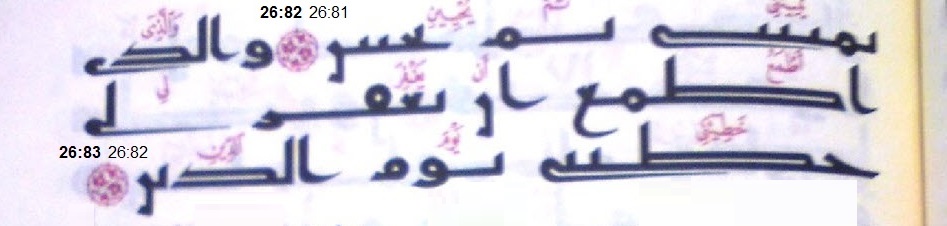 26:82 26:81
يميتني ثم يحيين والذي
اطمع ان يغفر لي
26:83 26:82
خطيتي يوم الدين